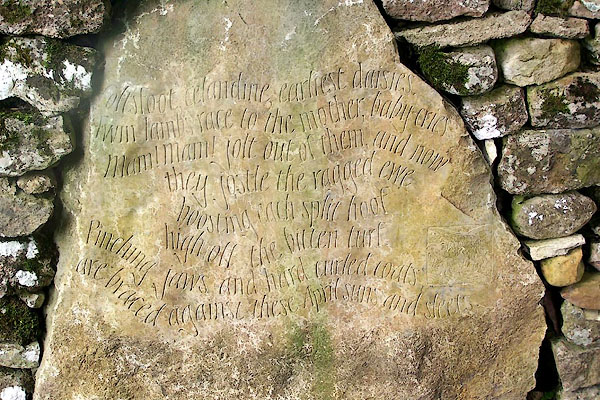 Coltsfoot, celandine, earliest daisies.
Twin lambs race to the mother, baby cries
Mam! Mam! jolt out of them, and now
they jostle the ragged ewe
boosting each split hoof
high off the bitten turf.
Pinching jaws and hard curled coats
are braced against these April suns and sleets